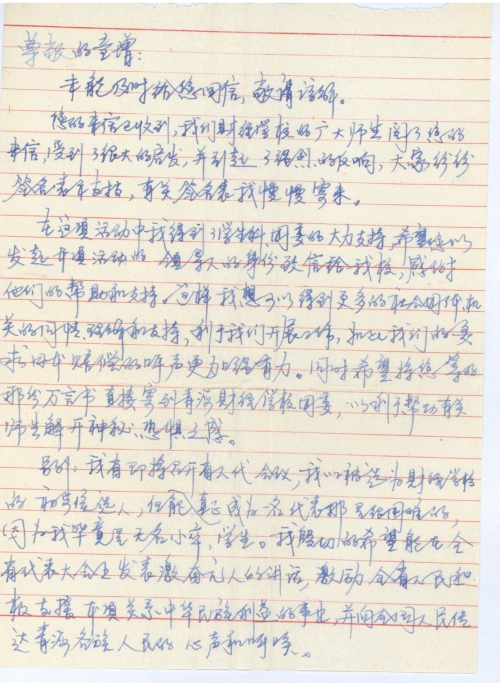 尊敬的童增：
未能及时给您回信，敬请谅解。
您的来信已收到，我们财经学校的广大师生阅了您的
来信，受到了很大的启发，并引起了强烈的反响，大家纷纷
签名表示支持，有关签名表我慢慢寄来。
在这项活动中我得到了学生科、团委的大力支持，希望您以
发起本项活动的领导人的身份致信给我校，感谢
他们的帮助和支持。这样我想可以得到更多的社会团体、机
关的同情、理解和支持，利于我们开展工作，如此我们的要
求日本赔偿的呼声更加强有力。同时希望将您写的
那份万言书直接寄到青海财经学校团委，以利于帮助有关
师生解开神秘、恐惧之感。
另外：我省即将召开省人代会议，我以被选为财经学校
的初步候选人，但能真正成为一名代表那是很困难的，
(因为我毕竟是无名小卒，学生。我殷切的希望能在全
省代表大会上发表激奋元人的讲话，激励全省人民积
极支援本项关系中华民族利益的事业，并向全国人民传
达青海各族人民的心声和呼唤。